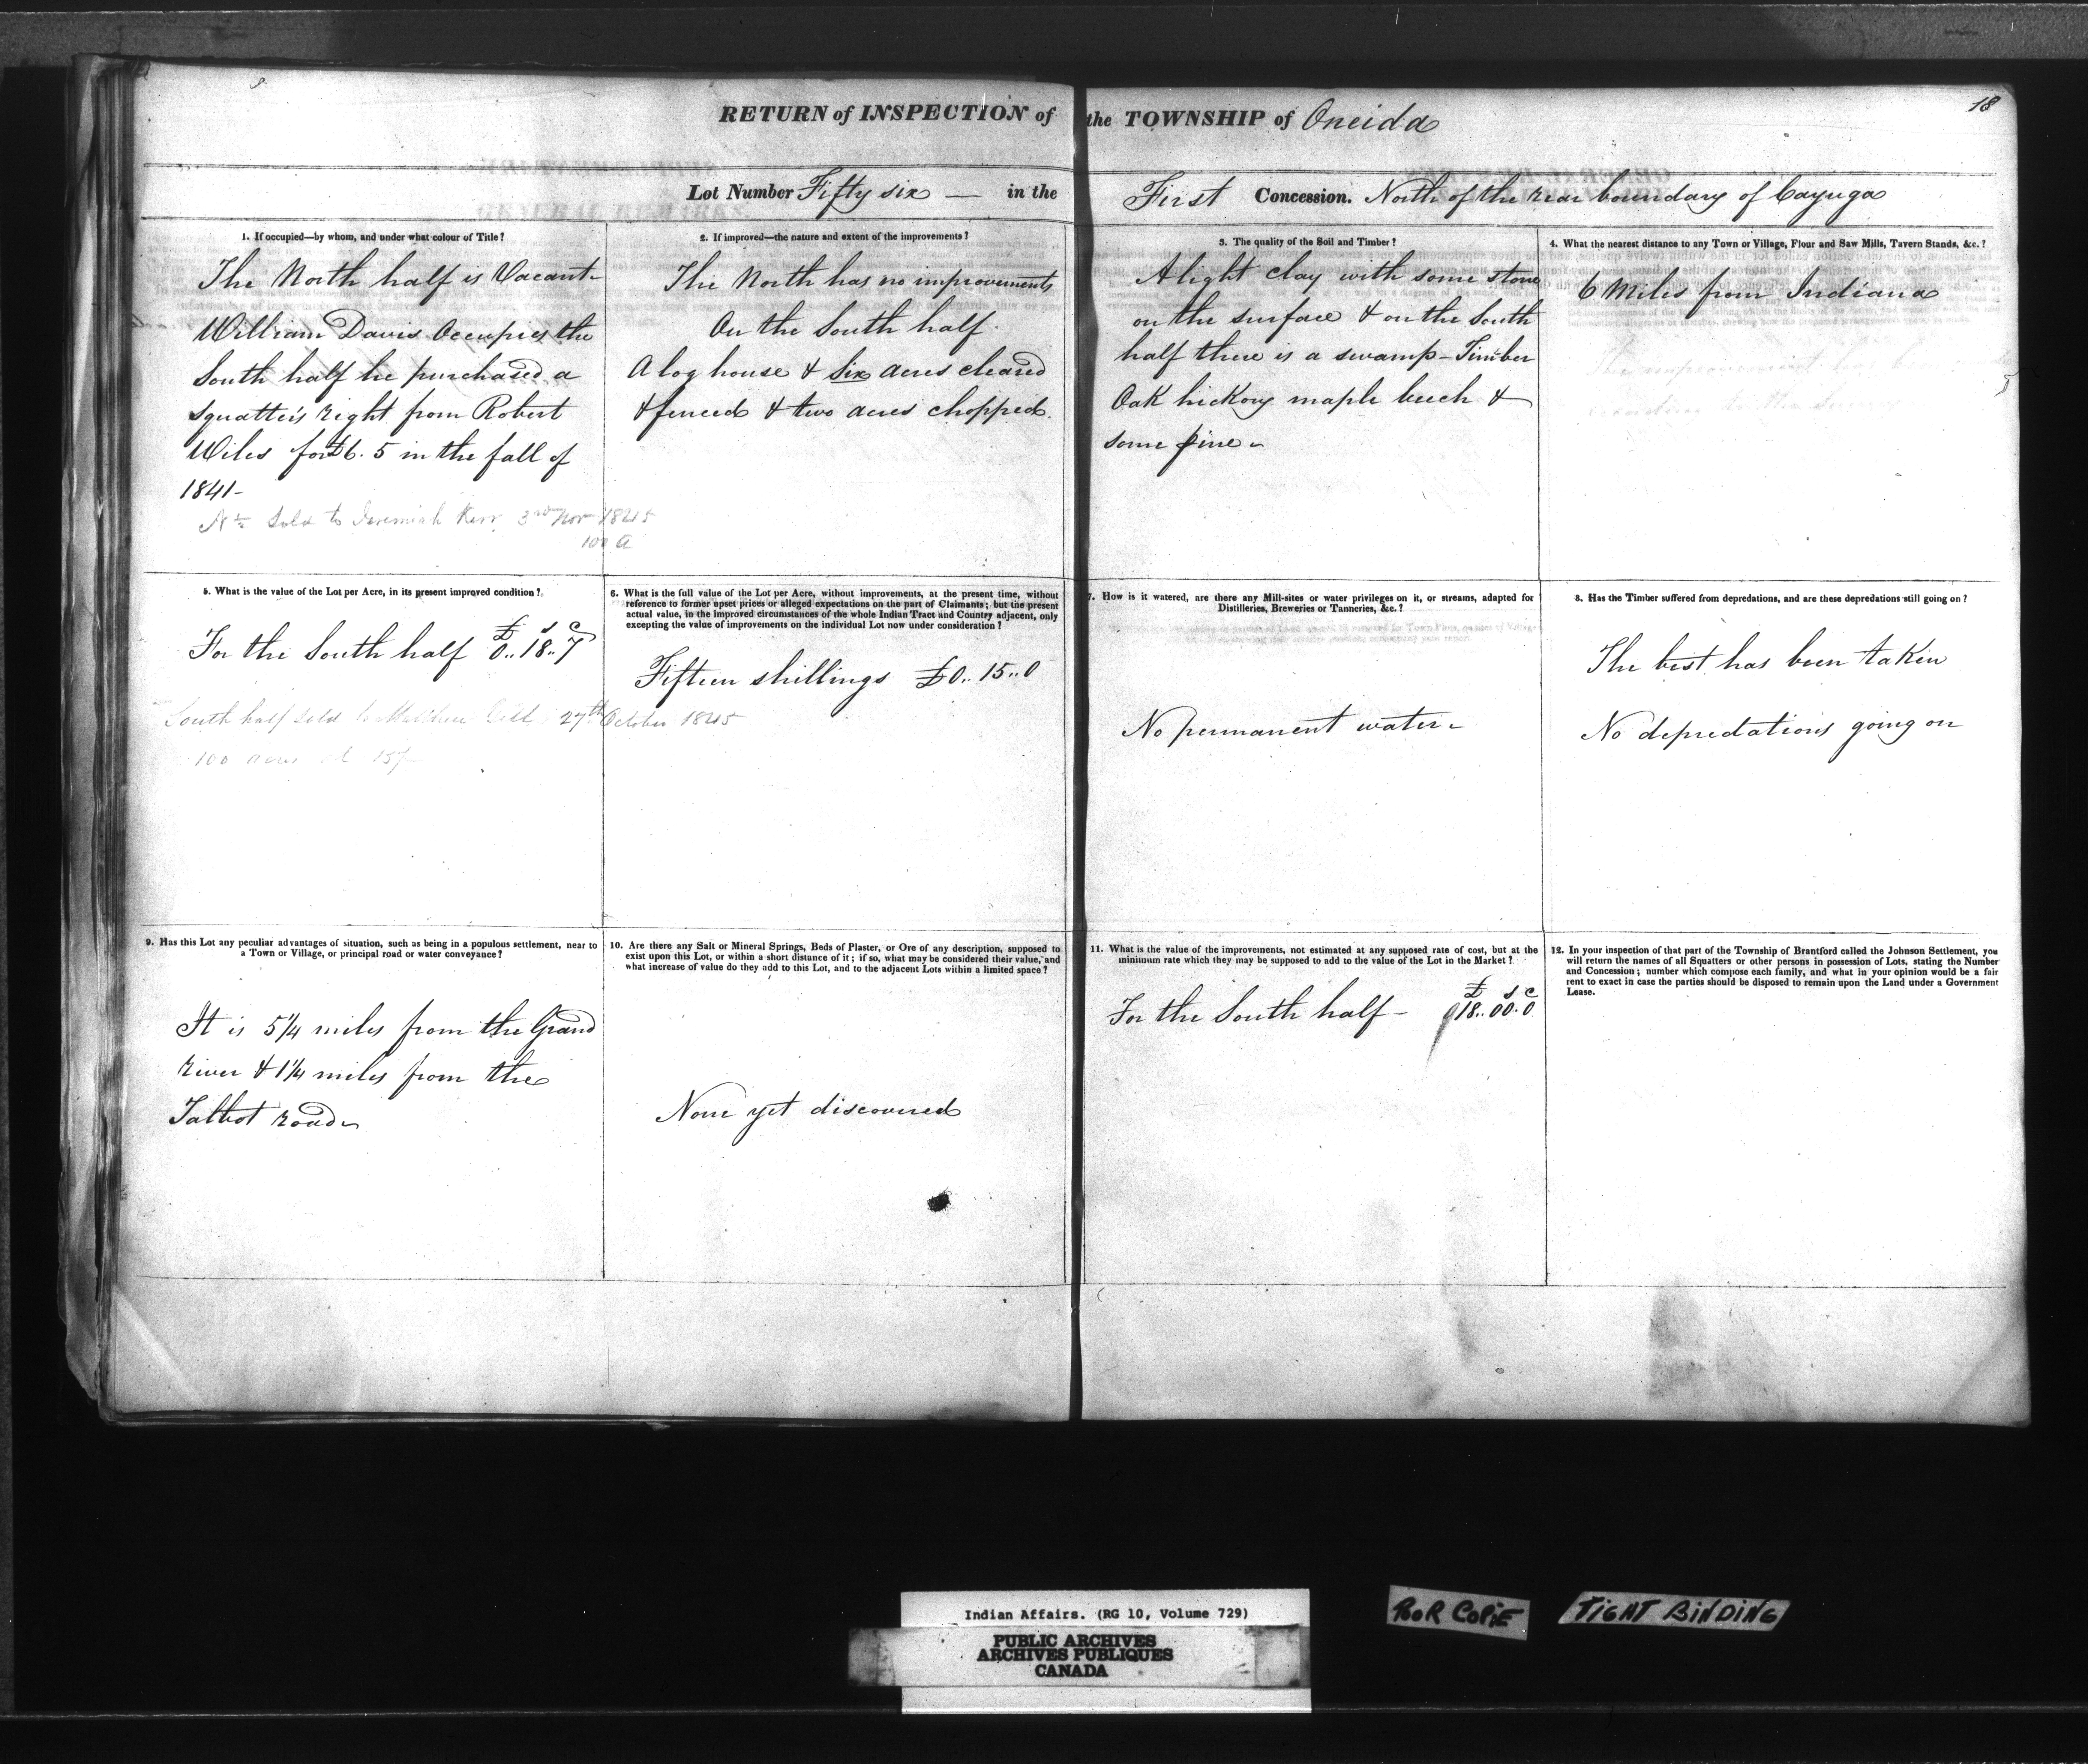 18
RETURN of INSPECTION of the TOWNSHIP of Oneida
Lot Number Fifty six — in the First Concession. North of the rear boundary of Cayuga
1. If occupied—by whom, and under what colour of Title?
The North half is Vacant-
William Davis Occupies the
South half he purchased a
squatter's right from Robert
Wiles for £6.5 in the fall of
1841-
N½ Sold to Jeremiah Kerr 3rd Nov 1845
100 A
2. If improved—the nature and extent of the improvements?
The North has no improvements
On the South half
A log house & six acres cleared
& fenced & two acres chopped.
3. The quality of the Soil and Timber?
A light clay with some stone
on the surface & on the South
half there is a swamp - Timber
Oak hickory maple beech &
some pine -
4. What the nearest distance to any Town or Village, Flour and Saw Mills, Tavern Stands, &c.?
6 Miles from Indiana
5. What is the value of the Lot per Acre, in its present improved condition?
£ s c
For the South half 0..18..7
South half sold to 27th October 1845
100 acres at 15/-
6. What is the full value of the Lot per Acre, without improvements, at the present time, without
reference to former upset prices or alleged expectations on the part of Claimants; but the present
actual value, in the improved circumstances of the whole Indian Tract and Country adjacent, only
excepting the value of improvements on the individual Lot now under consideration?
Fifteen shillings £0..15..0
7. How is it watered, are there any Mill-sites or water privileges on it, or streams, adapted for
Distilleries, Breweries or Tanneries, &c.?
No permanent water -
8. Has the Timber suffered from depredations, and are these depredations still going on?
The best has been taken
No depredations going on
9. Has this Lot any peculiar advantages of situation, such as being in a populous settlement, near to
a Town or Village, or principal road or water conveyance?
It is 5¼ miles from the Grand
river & 1¼ miles from the
Talbot road -
10. Are there any Salt or Mineral Springs, Beds of Plaster, or Ore of any description, supposed to
exist upon this Lot, or within a short distance of it; if so, what may be considered their value, and
what increase of value do they add to this Lot, and to the adjacent Lots within a limited space?
None yet discovered
11. What is the value of the improvements, not estimated at any supposed rate of cost, but at the
minimum rate which they may be supposed to add to the value of the Lot in the Market?
£ s c
For the South half - 18..00.0
12. In your inspection of that part of the Township of Brantford called the Johnson Settlement, you
will return the names of all Squatters or other persons in possession of Lots, stating the Number
and Concession; number which compose each family, and what in your opinion would be a fair
rent to exact in case the parties should be disposed to remain upon the Land under a Government
Lease.
Indian Affairs. (RG 10, Volume 729)
PUBLIC ARCHIVES
ARCHIVES PUBLIQUES
CANADA
POOR COPIE
TIGHT BINDING